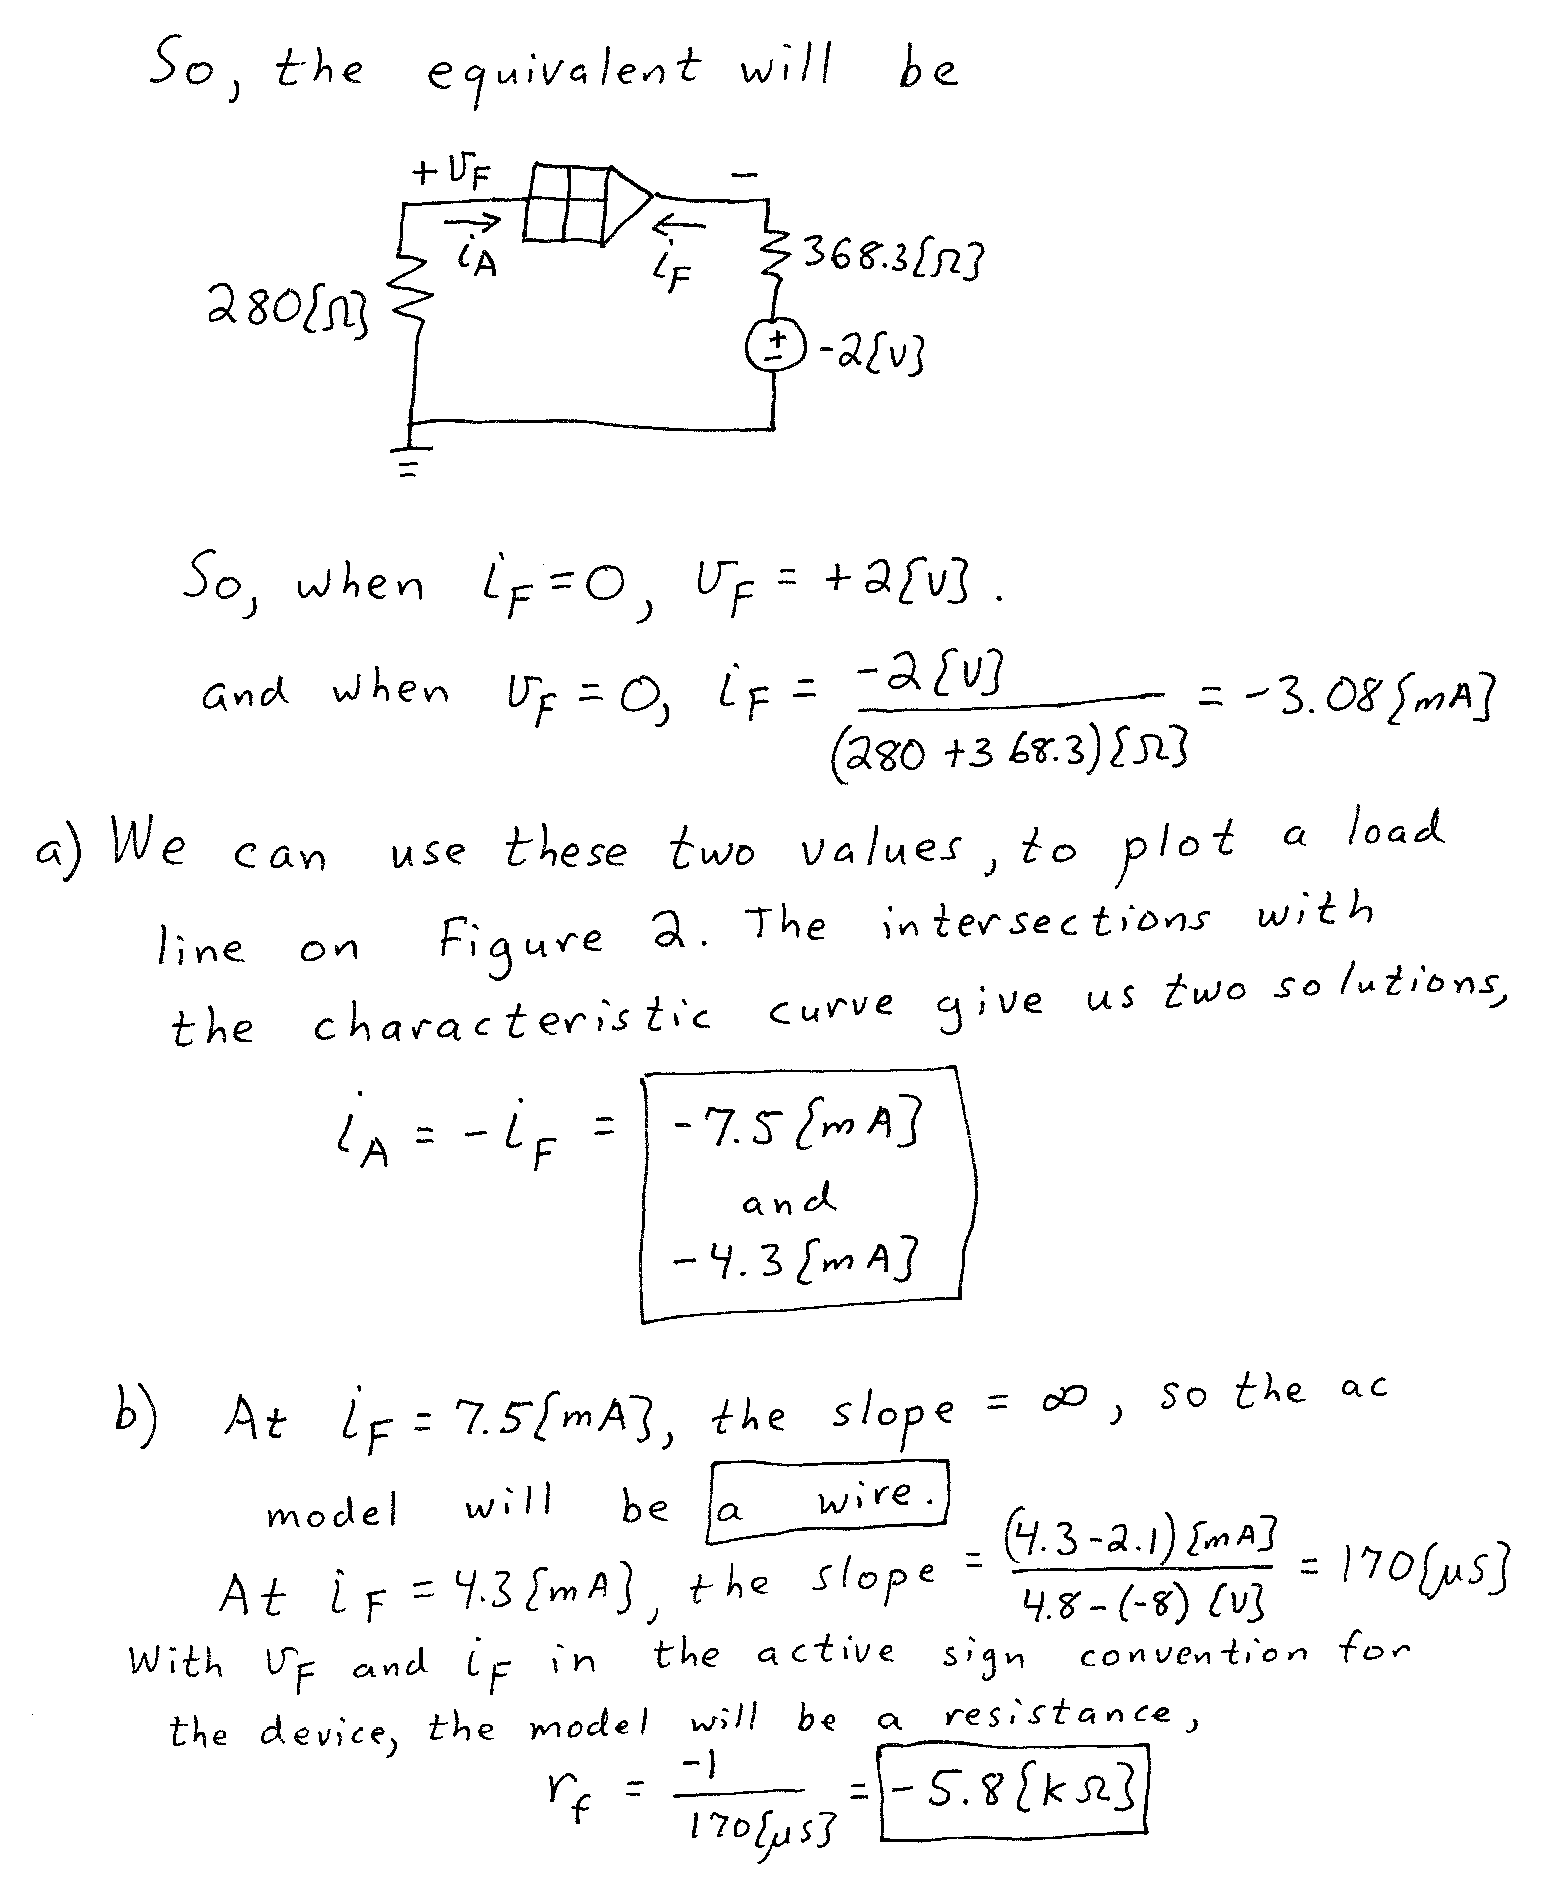 So, the equivalent will be
+ v_F -
i_A i_F
280{Ω} 368.3{Ω}
+ - -2{V}
So, when i_F = 0, v_F = +2{V}.
and when v_F = 0, i_F = -2{V} / (280 + 368.3){Ω} = -3.08{mA}
a) We can use these two values, to plot a load
line on Figure 2. The intersections with
the characteristic curve give us two solutions,
i_A = -i_F = -7.5{mA}
and
-4.3{mA}
b) At i_F = 7.5{mA}, the slope = ∞, so the ac
model will be a wire.
At i_F = 4.3{mA}, the slope = (4.3-2.1){mA} / 4.8-(-8) {V} = 170{μS}
With v_F and i_F in the active sign convention for
the device, the model will be a resistance,
r_f = -1 / 170{μS} = -5.8{kΩ}